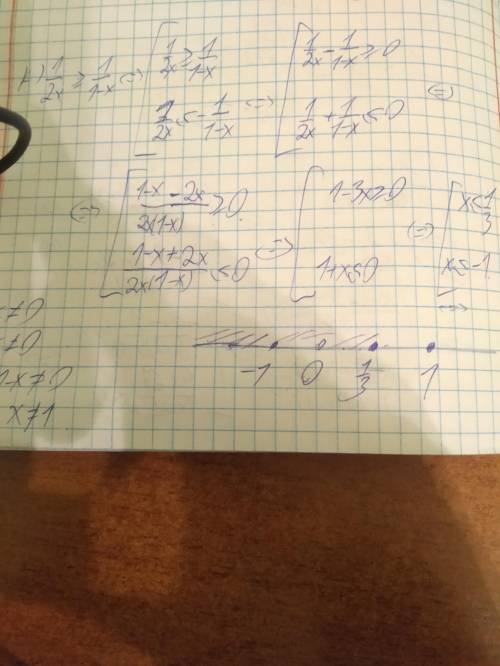 1/2x ≥ 1/(1-x) ⇔ [ 1/2x ≥ 1/(1-x) ; 1/2x ≤ -1/(1-x) ⇔ [ 1/2x - 1/(1-x) ≥ 0 ; 1/2x + 1/(1-x) ≤ 0 ⇔
⇔ [ (1-x-2x)/(2x(1-x)) ≥ 0 ; (1-x+2x)/(2x(1-x)) ≤ 0 ⇔ [ 1-3x ≥ 0 ; 1+x ≤ 0 ⇔ [ x ≤ 1/3 ; x ≤ -1 ⇔
≠0
≠0
1-x≠0
x≠1
-1 0 1/3 1